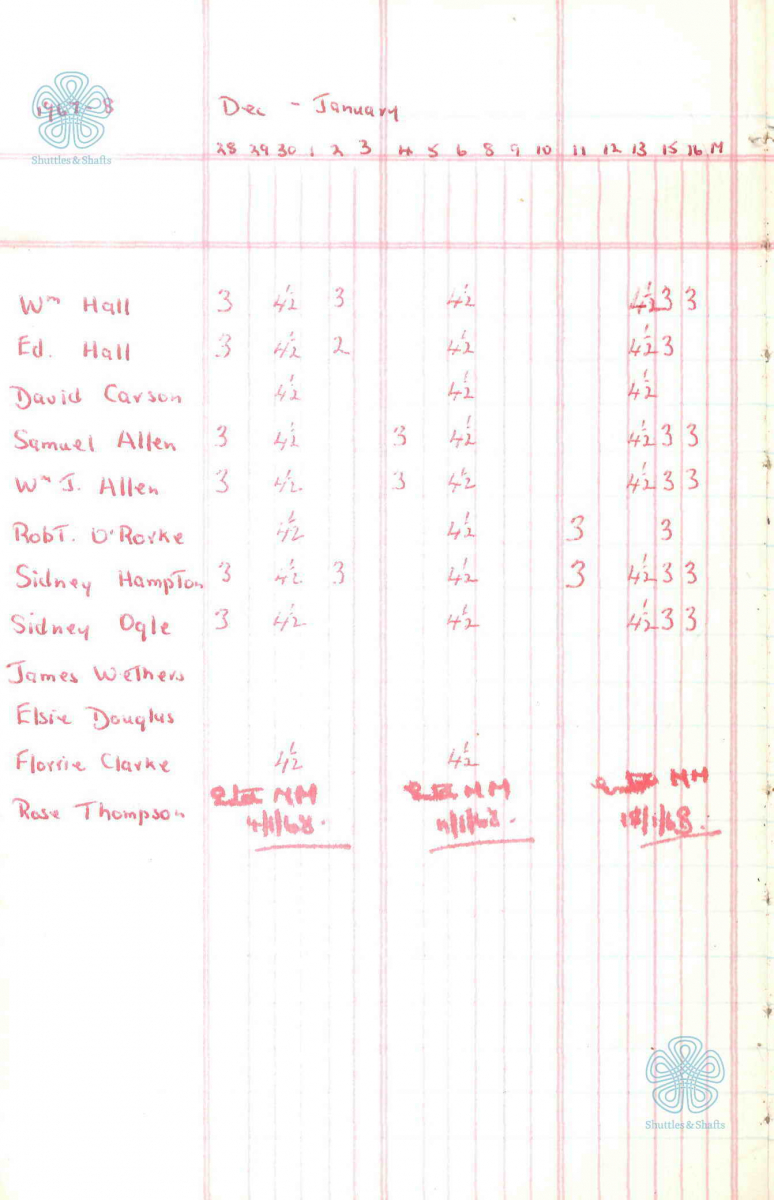 1967-8 Dec - January
Shuttles & Shafts
28 29 30 1 2 3 4 5 6 8 9 10 11 12 13 15 16 M
Wm Hall 3 4½ 3 4½ 4½ 3 3
Ed. Hall 3 4½ 2 4½ 4½ 3
David Carson 4½ 4½ 4½
Samuel Allen 3 4½ 3 4½ 4½ 3 3
Wm J. Allen 3 4½ 3 4½ 4½ 3 3
Robt. O'Rorke 4½ 4½ 3 3
Sidney Hampton 3 4½ 3 4½ 3 4½ 3 3
Sidney Ogle 3 4½ 4½ 4½ 3 3
James Wethers
Elsie Douglas
Florrie Clarke 4½ 4½
MM MM MM
Rose Thompson 4/1/68. 11/1/68. 18/1/68.
Shuttles & Shafts